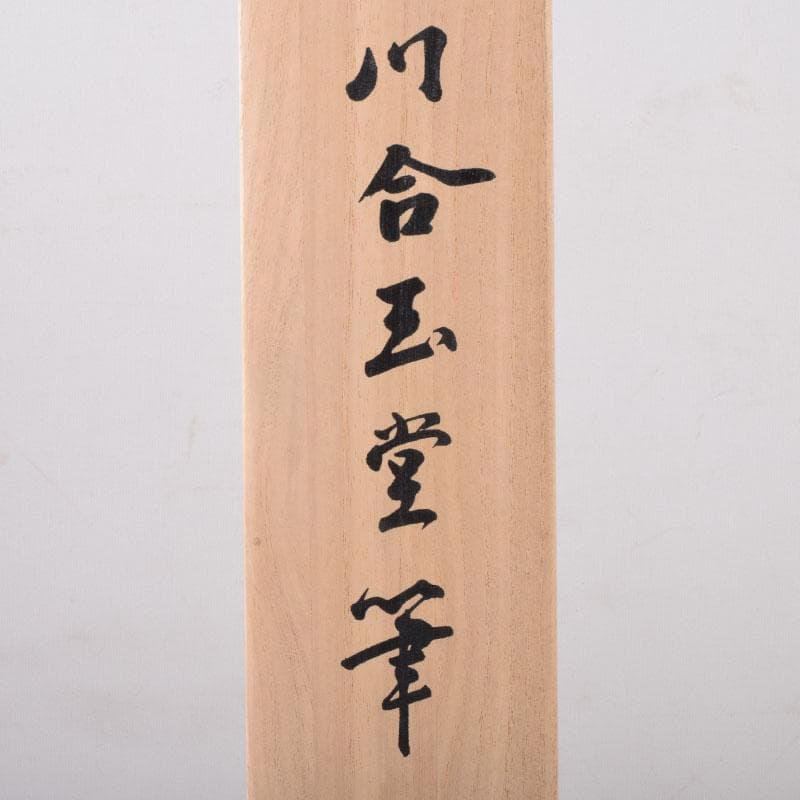 川合玉堂筆